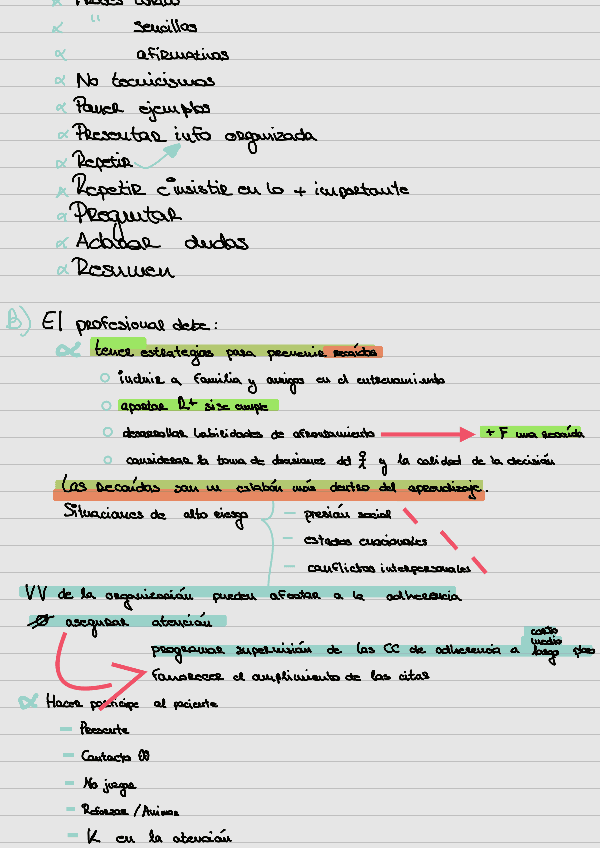 Frases cortas
" sencillas
afirmativas
No tecnicismos
Poner ejemplos
Presentar info organizada
Repetir
Repetir e insistir en lo + importante
Preguntar
Aclarar dudas
Resumen
B) El profesional debe:
tener estrategias para prevenir recaídas
incluir a familia y amigos en el entrenamiento
aportar R+ si se cumple
desarrollar habilidades de afrontamiento → + F una recaída
considerar la toma de decisiones del y la calidad de la decisión
Las recaídas son un eslabón más dentro del aprendizaje.
Situaciones de alto riesgo
- presión social
- estados emocionales
- conflictos interpersonales
VV de la organización pueden afectar a la adherencia
asegurar atención
programar supervisión de las CC de adherencia a corto medio largo plazo
Favorecer el cumplimiento de las citas
Hacer partícipe al paciente
- Presente
- Contacto
- No juzgar
- Reforzar / Animar
- K en la atención